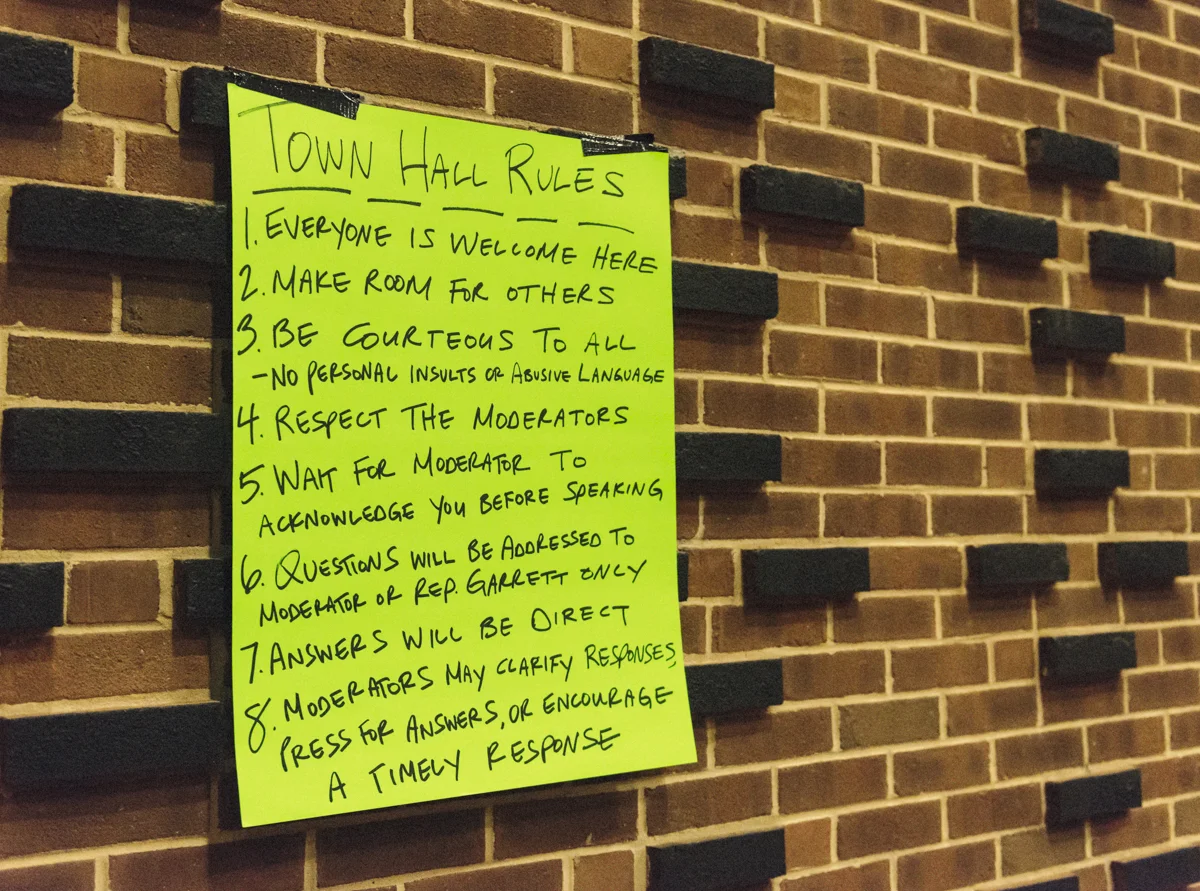 TOWN HALL RULES
1. EVERYONE IS WELCOME HERE
2. MAKE ROOM FOR OTHERS
3. BE COURTEOUS TO ALL
- NO PERSONAL INSULTS OR ABUSIVE LANGUAGE
4. RESPECT THE MODERATORS
5. WAIT FOR MODERATOR TO
ACKNOWLEDGE YOU BEFORE SPEAKING
6. QUESTIONS WILL BE ADDRESSED TO
MODERATOR OR REP. GARRETT ONLY
7. ANSWERS WILL BE DIRECT
8. MODERATORS MAY CLARIFY RESPONSES,
PRESS FOR ANSWERS, OR ENCOURAGE
A TIMELY RESPONSE